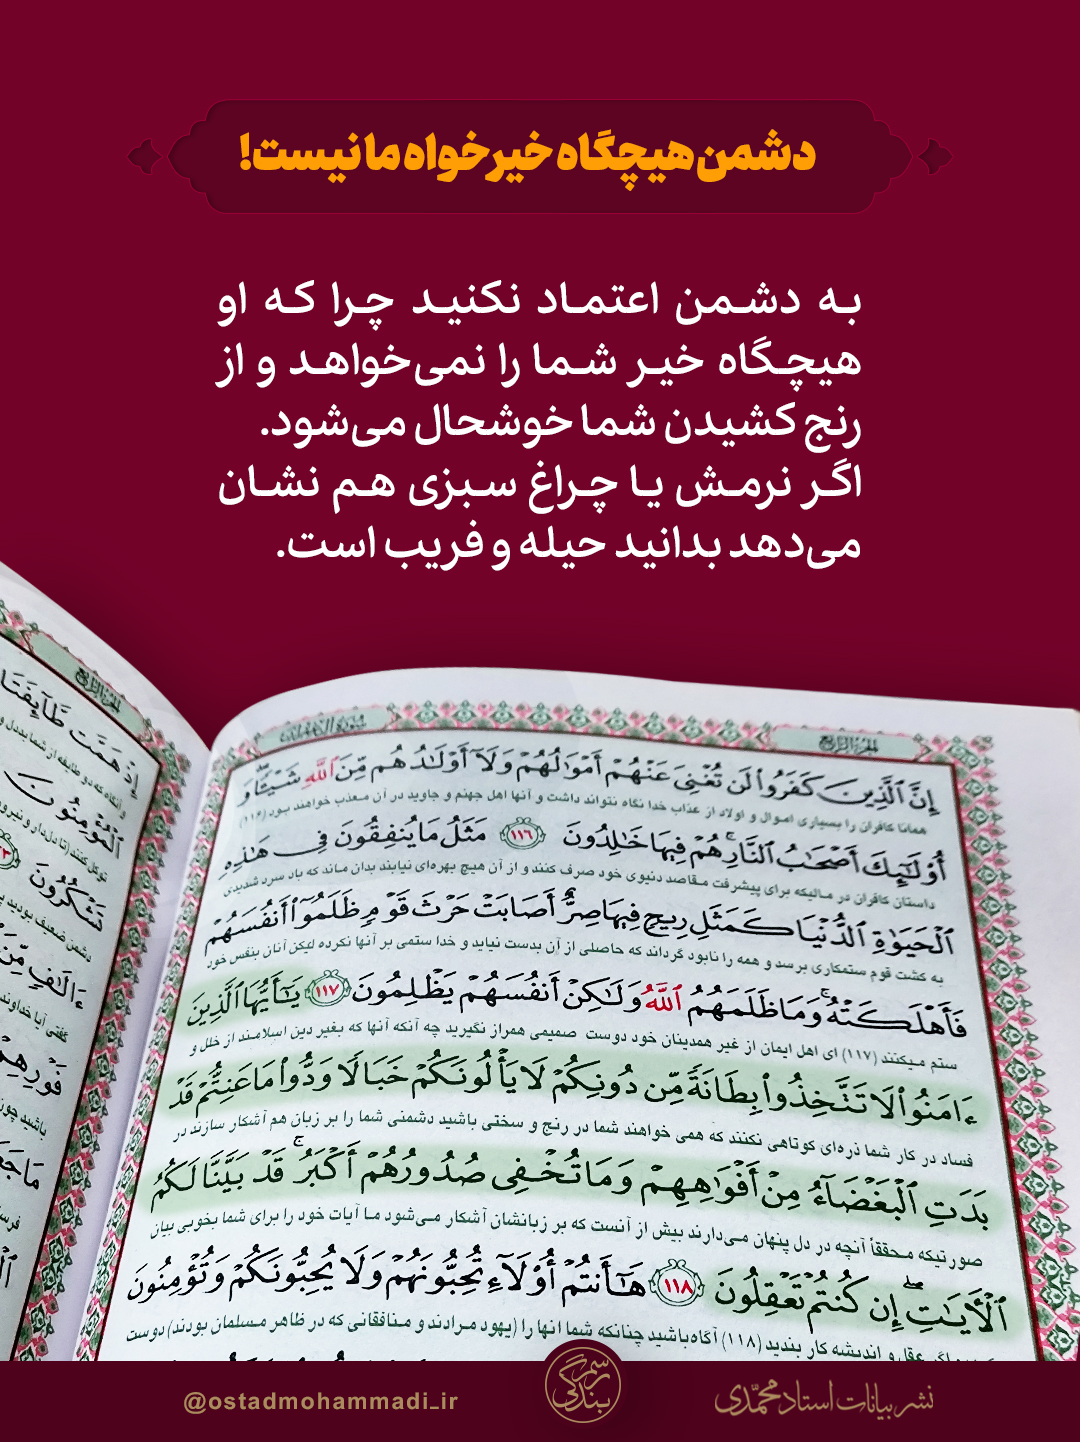 دشمن هیچگاه خیرخواه ما نیست!
به دشمن اعتماد نکنید چرا که او
هیچگاه خیر شما را نمی‌خواهد و از
رنج کشیدن شما خوشحال می‌شود.
اگر نرمش یا چراغ سبزی هم نشان
می‌دهد بدانید حیله و فریب است.
إِذْ هَمَّت طَّآئِفَتَا
ٱلْمُؤْمِنُونَ
تَشْكُرُونَ
ءَالَٰفٍ مِّنَ
فَوْرِهِمْ
الجزء الرابع
سورة آل عمران
الجزء الرابع
إِنَّ ٱلَّذِينَ كَفَرُوا۟ لَن تُغْنِىَ عَنْهُمْ أَمْوَٰلُهُمْ وَلَآ أَوْلَٰدُهُم مِّنَ ٱللَّهِ شَيْـًٔا ۖ وَ
همانا کافران را بسیاری اموال و اولاد از عذاب خدا نگاه نتواند داشت و آنها اهل جهنم و جاوید در آن معذب خواهند بود (۱۱۶)
أُو۟لَٰٓئِكَ أَصْحَٰبُ ٱلنَّارِ ۚ هُمْ فِيهَا خَٰلِدُونَ ۝١١٦ مَثَلُ مَا يُنفِقُونَ فِى هَٰذِهِ
داستان کافران در مالیکه برای پیشرفت مقاصد دنیوی خود صرف کنند و از آن هیچ بهره‌ای نیابند بدان ماند که باد سرد شدیدی
ٱلْحَيَوٰةِ ٱلدُّنْيَا كَمَثَلِ رِيحٍ فِيهَا صِرٌّ أَصَابَتْ حَرْثَ قَوْمٍ ظَلَمُوٓا۟ أَنفُسَهُمْ
به کشت قوم ستمکاری برسد و همه را نابود گرداند که حاصلی از آن بدست نیاید و خدا ستمی بر آنها نکرده لیکن آنان بنفس خود
فَأَهْلَكَتْهُ ۚ وَمَا ظَلَمَهُمُ ٱللَّهُ وَلَٰكِنْ أَنفُسَهُمْ يَظْلِمُونَ ۝١١٧ يَٰٓأَيُّهَا ٱلَّذِينَ
ستم میکنند (۱۱۷) ای اهل ایمان از غیر همدینان خود دوست صمیمی همراز نگیرید چه آنکه آنها که بغیر دین اسلامند از خلل و
ءَامَنُوا۟ لَا تَتَّخِذُوا۟ بِطَانَةً مِّن دُونِكُمْ لَا يَأْلُونَكُمْ خَبَالًا وَدُّوا۟ مَا عَنِتُّمْ قَدْ
فساد در کار شما ذره‌ای کوتاهی نکنند که همی خواهند شما در رنج و سختی باشید دشمنی شما را بر زبان هم آشکار سازند در
بَدَتِ ٱلْبَغْضَآءُ مِنْ أَفْوَٰهِهِمْ وَمَا تُخْفِى صُدُورُهُمْ أَكْبَرُ ۚ قَدْ بَيَّنَّا لَكُمُ
صورتیکه محققاً آنچه در دل پنهان می‌دارند بیش از آنست که بر زبانشان آشکار می‌شود ما آیات خود را برای شما بخوبی بیان
ٱلْءَايَٰتِ ۖ إِن كُنتُمْ تَعْقِلُونَ ۝١١٨ هَٰٓأَنتُمْ أُو۟لَآءِ تُحِبُّونَهُمْ وَلَا يُحِبُّونَكُمْ وَتُؤْمِنُونَ
اگر عقل و اندیشه کار بندید (۱۱۸) آگاه باشید چنانکه شما آنها را (یهود مرادند و منافقانی که در ظاهر مسلمان بودند) دوست
نشر بیانات استاد محمدی
رسم بندگی
@ostadmohammadi_ir